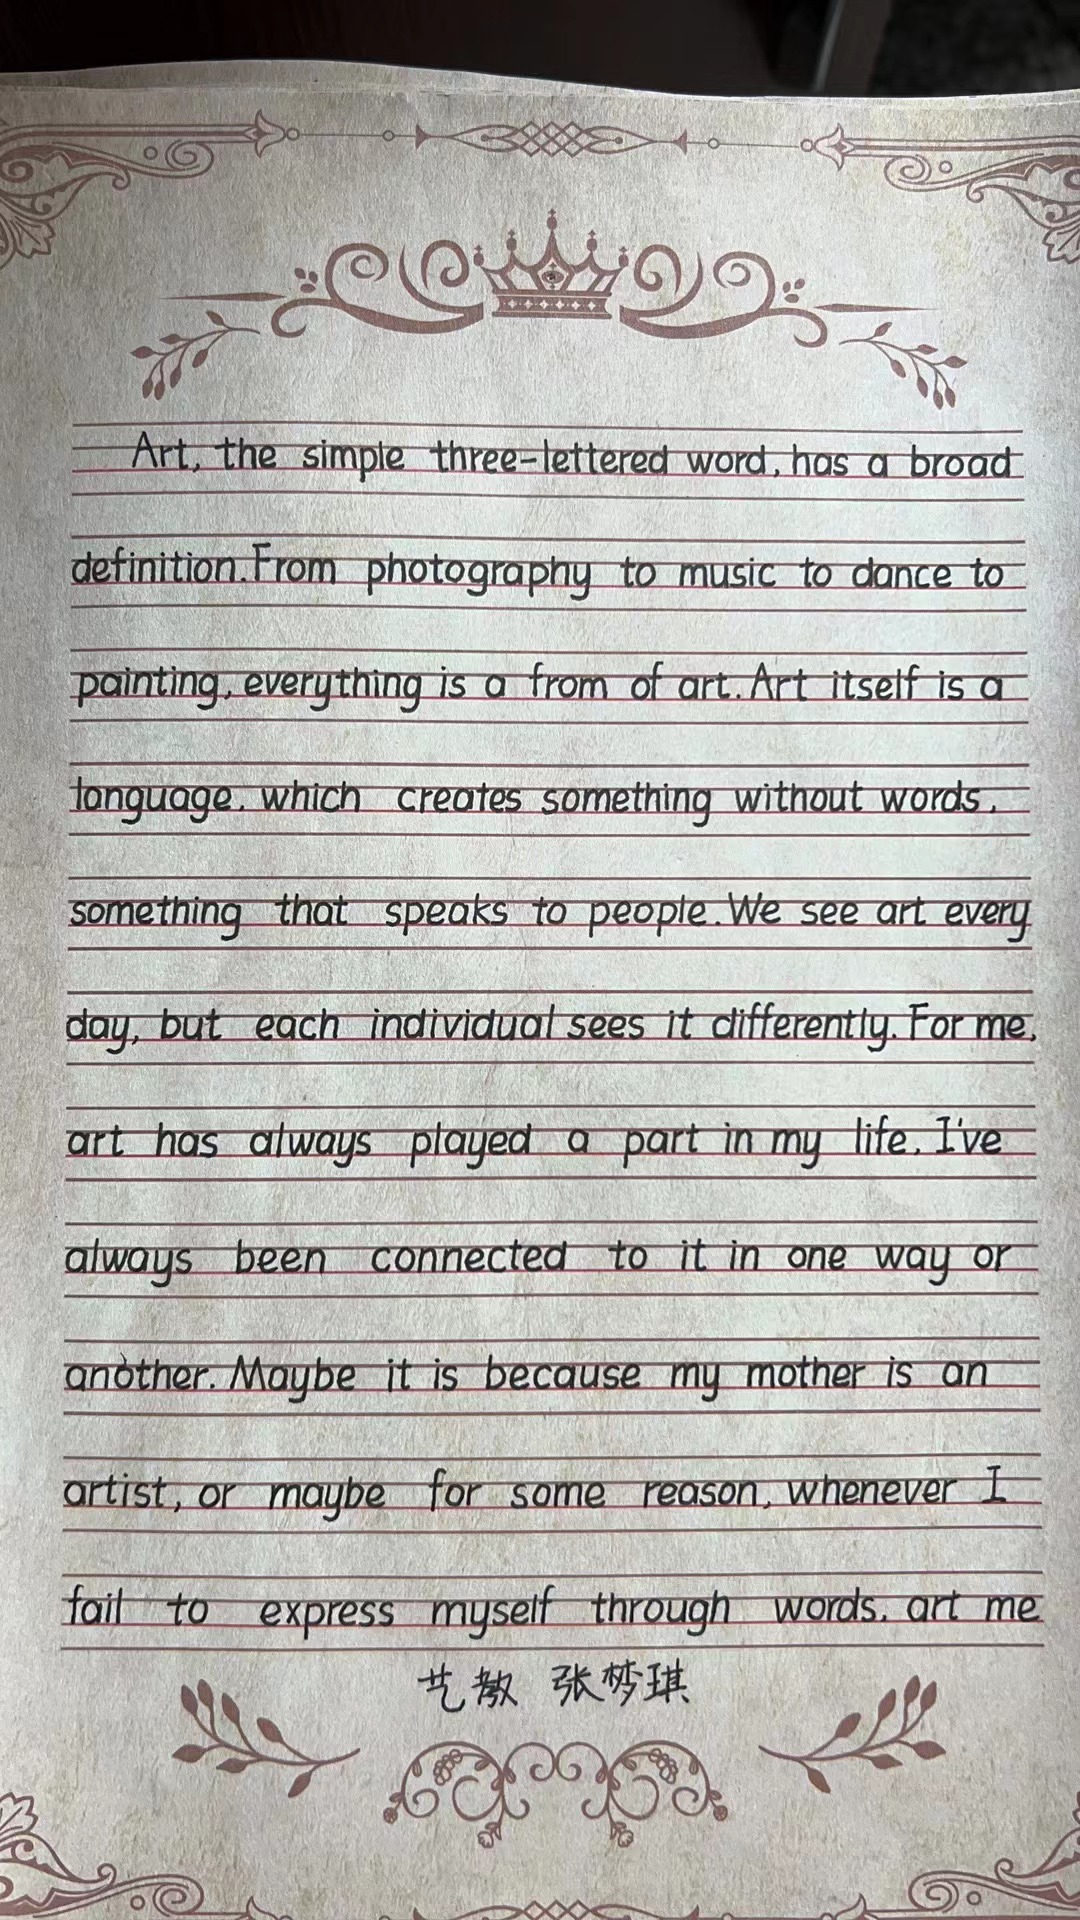 Art, the simple three-lettered word, has a broad
definition. From photography to music to dance to
painting, everything is a from of art. Art itself is a
language. which creates something without words,
something that speaks to people. We see art every
day, but each individual sees it differently. For me,
art has always played a part in my life. I've
always been connected to it in one way or
another. Maybe it is because my mother is an
artist, or maybe for some reason, whenever I
fail to express myself through words. art me
艺教 张梦琪